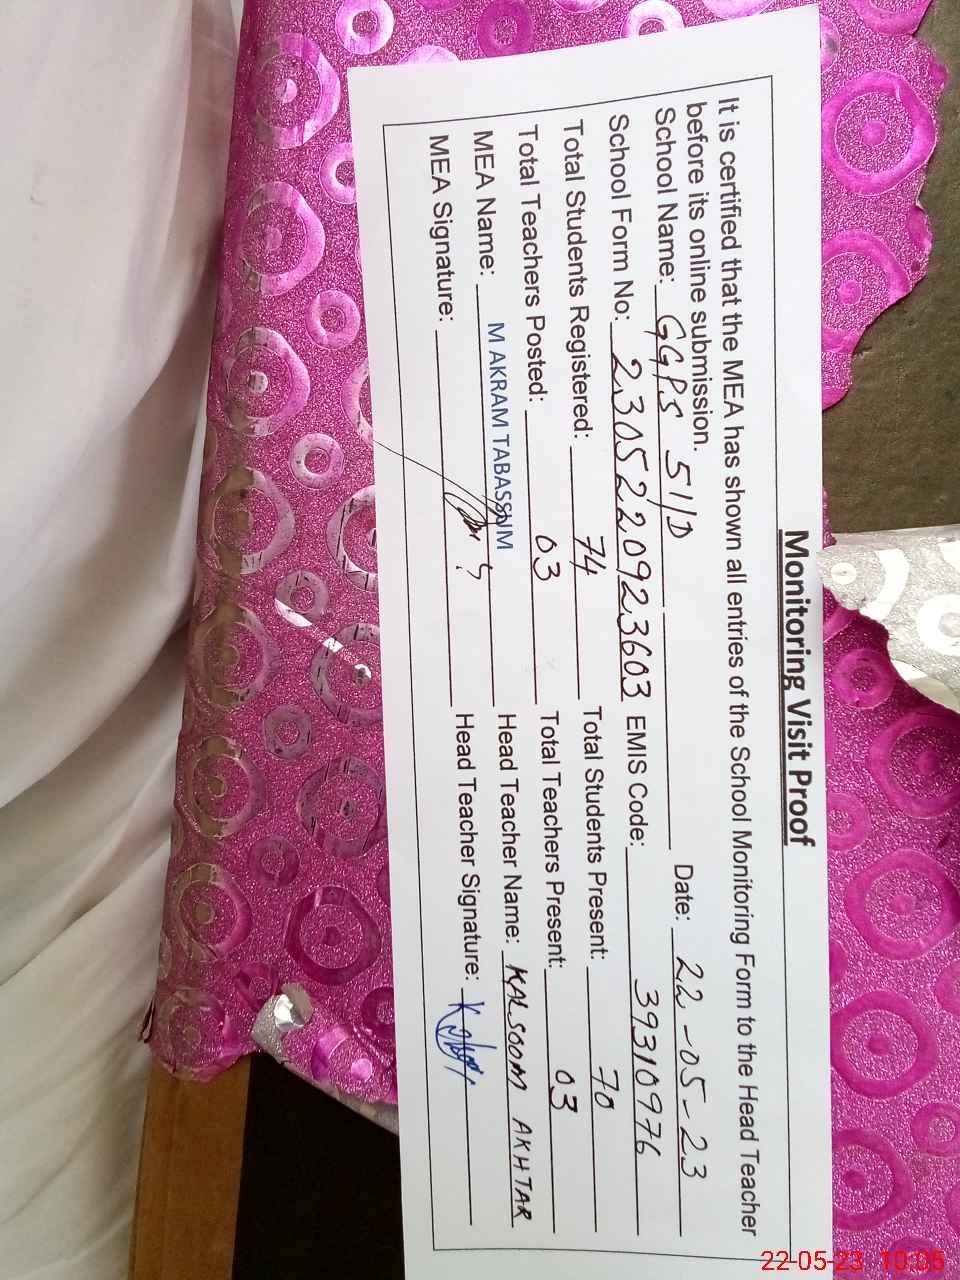 Monitoring Visit Proof
It is certified that the MEA has shown all entries of the School Monitoring Form to the Head Teacher
before its online submission.
School Name: GGPS 511/D Date: 22-05-23
School Form No: 2305220923603 EMIS Code: 39310976
Total Students Registered: 74 Total Students Present: 70
Total Teachers Posted: 03 Total Teachers Present: 03
MEA Name: M AKRAM TABASSUM Head Teacher Name: KALSOOM AKHTAR
MEA Signature: Head Teacher Signature:
22-05-23 10:05